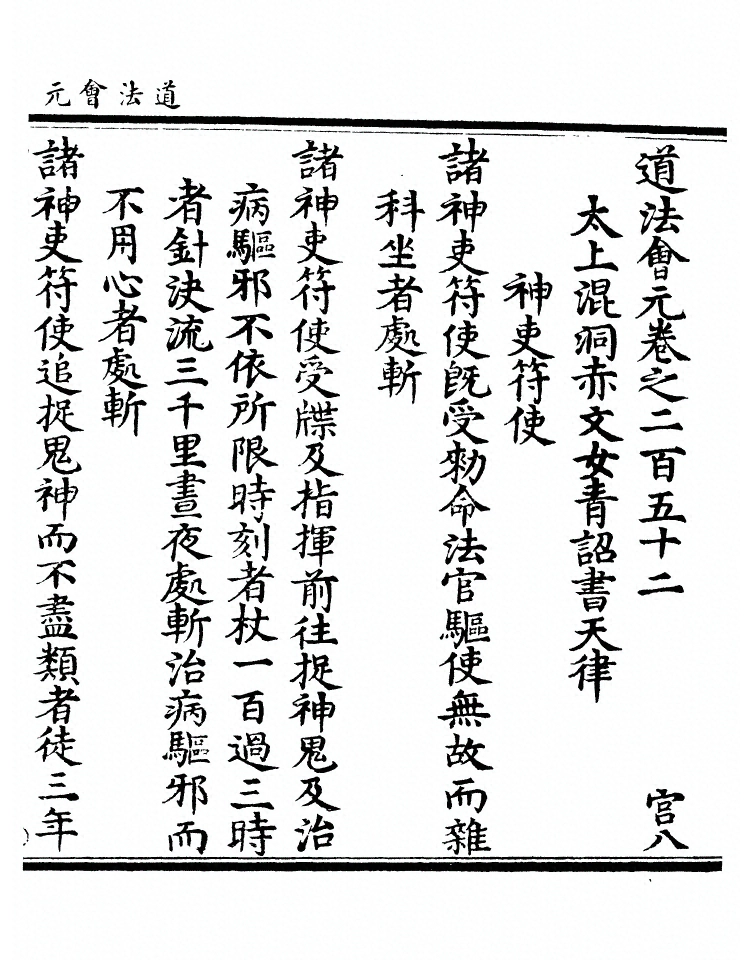 道法會元
道法會元卷之二百五十二 宫八
太上混洞赤文女青詔書天律
神吏符使
諸神吏符使旣受勑命法官驅使無故而離
科坐者處斬
諸神吏符使受牒及指揮前往捉神鬼及治
病驅邪不依所限時刻者杖一百過三時
者針決流三千里晝夜處斬治病驅邪而
不用心者處斬
諸神吏符使追捉鬼神而不盡類者徒三年